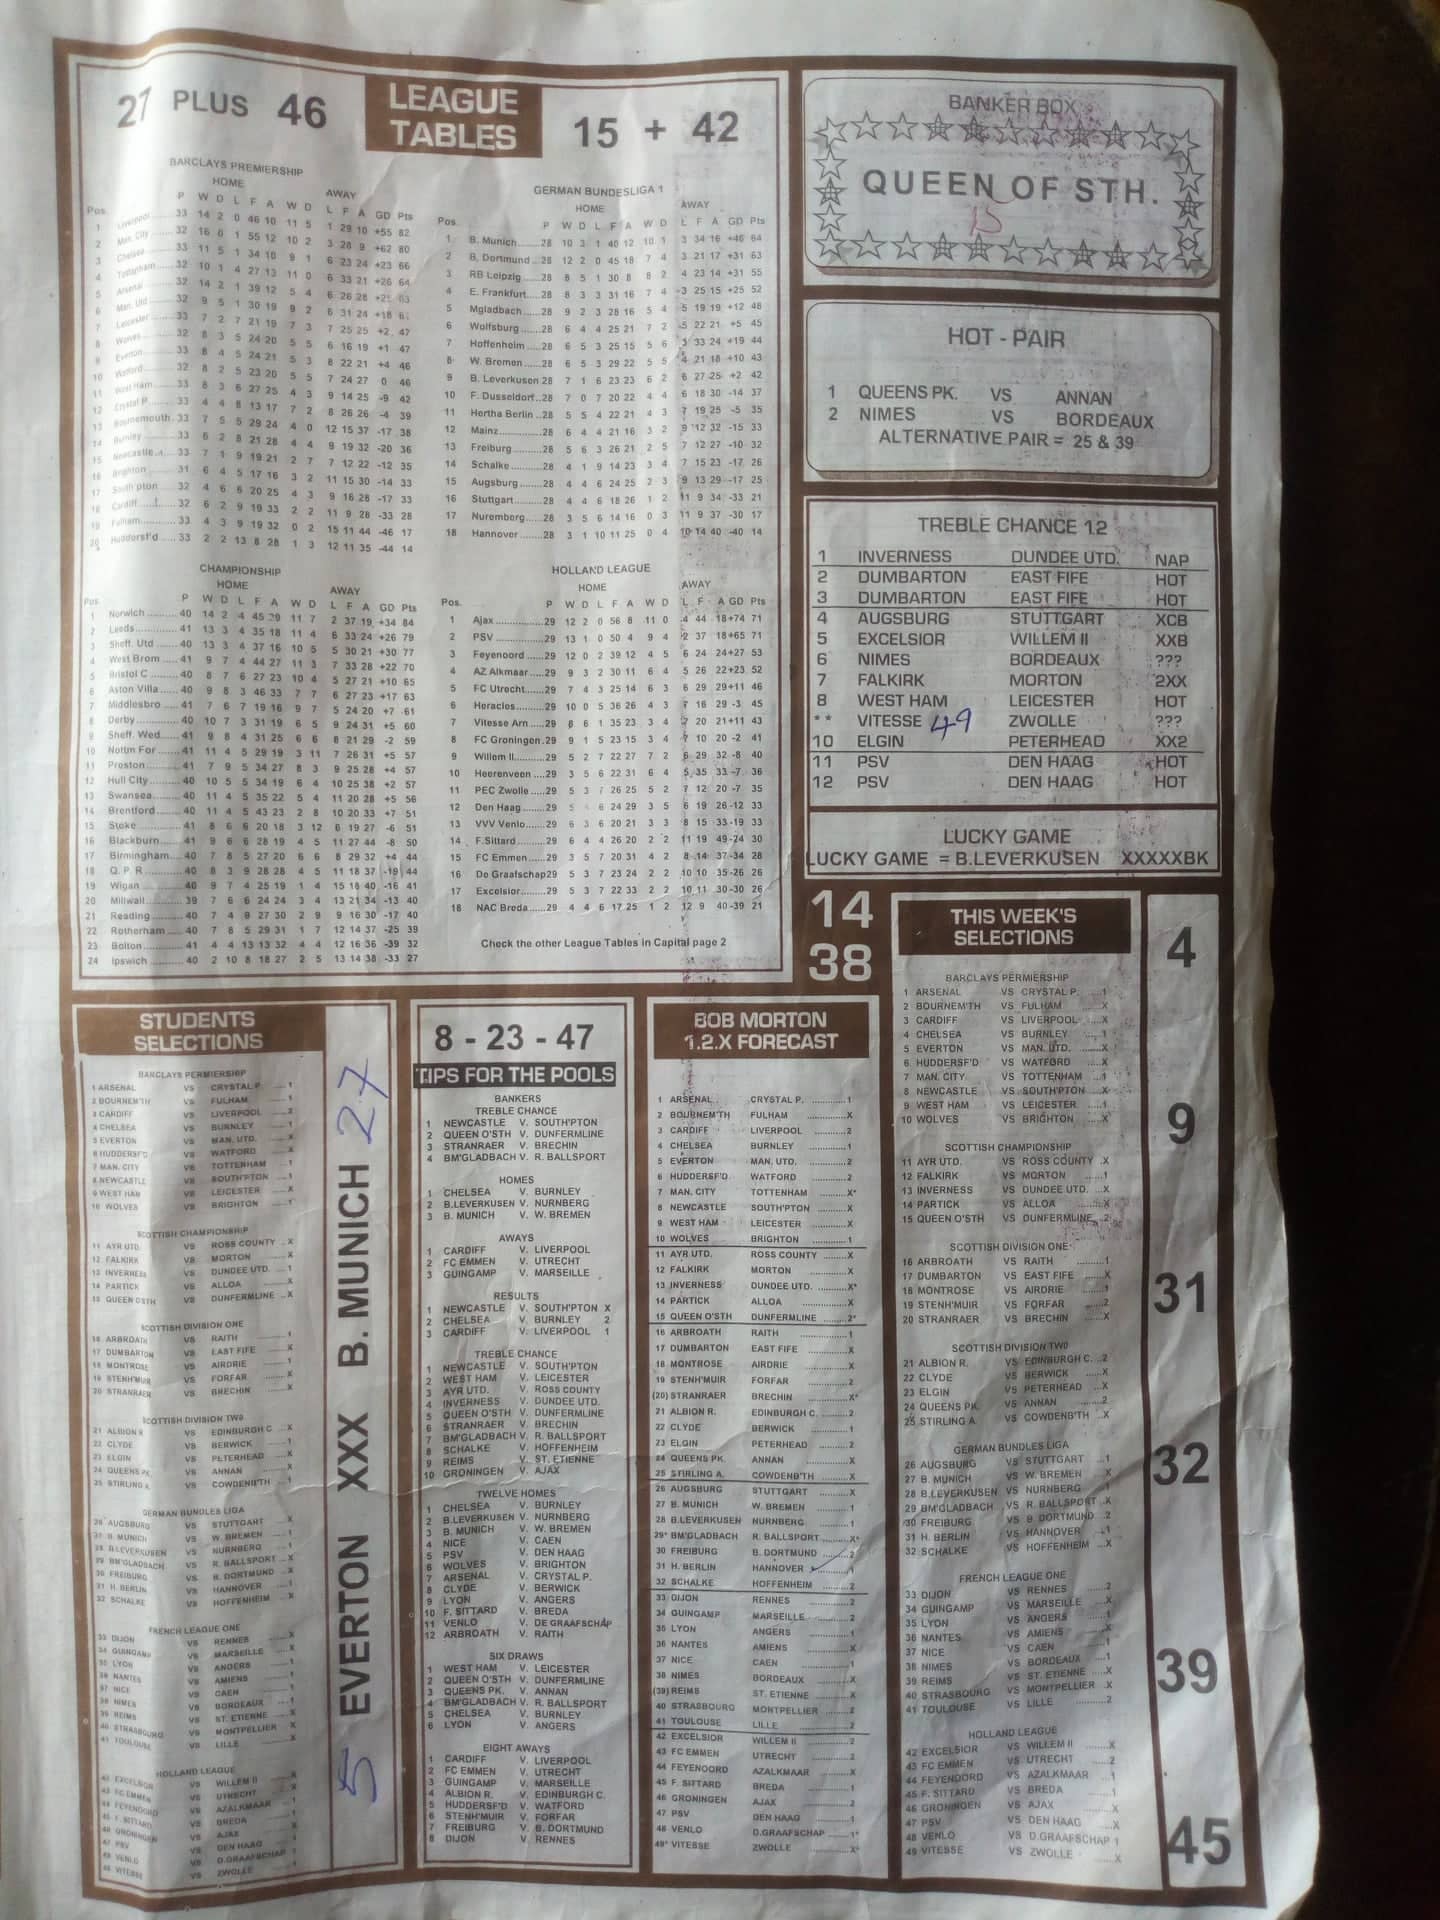 27 PLUS 46
LEAGUE
TABLES
15 + 42
BARCLAYS PREMIERSHIP
HOME AWAY
Pos. P W D L F A W D L F A GD Pts
1 Liverpool 33 14 2 0 46 10 11 5 1 29 10 +55 82
2 Man. City 32 16 0 1 55 12 10 2 3 28 9 +62 80
3 Chelsea 33 11 5 1 34 10 9 1 6 23 24 +23 66
4 Tottenham 32 10 1 4 27 13 11 0 6 33 21 +26 64
5 Arsenal 32 14 2 1 39 12 5 4 6 26 28
6 Man. Utd 32 9 5 1 30 19 9 2 6 31 24
7 Leicester 33 7 2 7 21 19 7 3 7 25 25 +2 47
8 Wolves 32 8 3 5 24 20 5 5 6 16 19 +1 47
9 Everton 33 8 4 5 24 21 5 3 8 22 21 +4 46
10 Watford 32 8 2 5 23 20 5 5 7 24 27 0 46
11 West Ham 33 8 3 6 27 25 4 3 9 14 25 -9 42
12 Crystal P. 33 4 4 8 13 17 7 2 8 26 26 -4 39
13 Bournemouth 33 7 5 5 29 24 4 0 12 15 37 -17 38
14 Burnley 33 6 2 8 21 28 4 4 9 19 32 -20 36
15 Newcastle 33 7 1 9 19 21 2 7 7 12 22 -12 35
16 Brighton 31 6 4 5 17 16 3 2 11 15 30 -14 33
17 South'pton 32 4 6 6 20 25 4 3 9 16 28 -17 33
18 Cardiff 32 6 2 9 19 33 2 2 11 9 28 -33 28
19 Fulham 33 4 3 9 19 32 0 2 15 11 44 -46 17
20 Huddersf'd 33 2 2 13 8 28 1 3 12 11 35 -44 14
GERMAN BUNDESLIGA 1
HOME AWAY
Pos. P W D L F A W D L F A GD Pts
1 B. Munich 28 10 3 1 40 12 10 1 3 34 16 +46 64
2 B. Dortmund 28 12 2 0 45 18 7 4 3 21 17 +31 63
3 RB Leipzig 28 8 5 1 30 8 8 2 4 23 14 +31 55
4 E. Frankfurt 28 8 3 3 31 16 7 4 3 25 15 +25 52
5 Mgladbach 28 9 2 3 28 16 5 4 5 19 19 +12 48
6 Wolfsburg 28 6 4 4 25 21 7 2 5 22 21 +5 45
7 Hoffenheim 28 6 5 3 25 15 5 6 3 33 24 +19 44
8 W. Bremen 28 6 5 3 29 22 5 5 4 21 18 +10 43
9 B. Leverkusen 28 7 1 6 23 23 6 2 6 27 25 +2 42
10 F. Dusseldorf 28 7 0 7 20 22 4 4 6 18 30 -14 37
11 Hertha Berlin 28 5 5 4 22 21 4 3 7 19 25 -5 35
12 Mainz 28 6 4 4 21 16 3 2 9 12 32 -15 33
13 Freiburg 28 5 6 3 26 21 2 5 7 12 27 -10 32
14 Schalke 28 4 1 9 14 23 3 4 7 15 23 -17 26
15 Augsburg 28 4 4 6 24 25 2 3 9 13 29 -17 25
16 Stuttgart 28 4 4 6 18 26 1 2 11 9 34 -33 21
17 Nuremberg 28 3 5 6 14 16 0 3 11 9 37 -30 17
18 Hannover 28 3 1 10 11 25 0 4 10 14 40 -40 14
CHAMPIONSHIP
HOME AWAY
Pos. P W D L F A W D L F A GD Pts
1 Norwich 40 14 2 4 45 29 11 7 2 37 19 +34 84
2 Leeds 41 13 3 4 35 18 11 4 6 33 24 +26 79
3 Sheff. Utd 40 13 3 4 37 16 10 5 5 30 21 +30 77
4 West Brom 41 9 7 4 44 27 11 3 7 33 28 +22 70
5 Bristol C 40 8 7 6 27 23 10 4 5 27 21 +10 65
6 Aston Villa 40 9 8 3 46 33 7 7 6 27 23 +17 63
7 Middlesbro 41 7 6 7 19 16 9 7 5 24 20 +7 61
8 Derby 40 10 7 3 31 19 6 5 9 24 31 +5 60
9 Sheff. Wed 41 9 8 4 31 25 6 6 8 21 29 -2 59
10 Nottm For 40 11 4 5 29 19 3 11 7 26 31 +5 57
11 Preston 41 7 9 5 34 27 8 3 9 25 28 +4 57
12 Hull City 40 10 5 5 34 19 6 4 10 25 38 +2 57
13 Swansea 40 11 4 5 35 22 5 4 11 20 28 +5 56
14 Brentford 40 11 4 5 43 23 2 8 10 20 33 +7 51
15 Stoke 41 8 6 6 20 18 3 12 6 19 27 -6 51
16 Blackburn 41 9 6 6 28 19 4 5 11 27 44 -8 50
17 Birmingham 40 7 8 5 27 20 6 6 8 29 32 +4 44
18 Q. P. R 40 8 3 9 28 28 4 5 11 18 37 -19 44
19 Wigan 40 9 7 4 25 19 1 4 15 18 40 -16 41
20 Millwall 39 7 6 6 24 24 3 4 13 21 34 -13 40
21 Reading 40 7 4 9 27 30 2 9 9 16 30 -17 40
22 Rotherham 40 7 8 5 29 31 1 7 12 14 37 -25 39
23 Bolton 41 4 4 13 13 32 4 4 12 16 36 -39 32
24 Ipswich 40 2 10 8 18 27 2 5 13 14 38 -33 27
HOLLAND LEAGUE
HOME AWAY
Pos. P W D L F A W D L F A GD Pts
1 Ajax 29 12 2 0 56 8 11 0 4 44 18+74 71
2 PSV 29 13 1 0 50 4 9 4 2 37 18+65 71
3 Feyenoord 29 12 0 2 39 12 4 5 6 24 24+27 53
4 AZ Alkmaar 29 9 3 2 30 11 6 4 5 26 22+23 52
5 FC Utrecht 29 7 4 3 25 14 6 3 6 29 29+11 46
6 Heracles 29 10 0 5 36 26 4 3 7 16 29 -3 45
7 Vitesse Arn 29 8 6 1 35 23 3 4 7 20 21+11 43
8 FC Groningen 29 9 1 5 23 15 3 4 7 10 20 -2 41
9 Willem II 29 5 2 7 22 27 7 2 6 29 32 -8 40
10 Heerenveen 29 3 5 6 22 31 6 4 5 35 33 -7 36
11 PEC Zwolle 29 5 3 7 26 25 5 2 7 12 20 -7 35
12 Den Haag 29 5 6 24 29 3 5 6 19 26 -12 33
13 VVV Venlo 29 6 3 6 20 21 3 3 8 15 33 -19 33
14 F.Sittard 29 6 4 4 26 20 2 2 11 19 49 -24 30
15 FC Emmen 29 3 5 7 20 31 4 2 8 14 37 -34 28
16 De Graafschap 29 5 3 7 23 24 2 2 10 10 35 -26 26
17 Excelsior 29 5 3 7 22 33 2 2 10 11 30 -30 26
18 NAC Breda 29 4 4 6 17 25 1 2 12 9 40 -39 21
Check the other League Tables in Capital page 2
BANKER BOX
QUEEN OF STH.
15
HOT - PAIR
1 QUEENS PK. VS ANNAN
2 NIMES VS BORDEAUX
ALTERNATIVE PAIR = 25 & 39
TREBLE CHANCE 12
1 INVERNESS DUNDEE UTD. NAP
2 DUMBARTON EAST FIFE HOT
3 DUMBARTON EAST FIFE HOT
4 AUGSBURG STUTTGART XCB
5 EXCELSIOR WILLEM II XXB
6 NIMES BORDEAUX ???
7 FALKIRK MORTON 2XX
8 WEST HAM LEICESTER HOT
** VITESSE 49 ZWOLLE ???
10 ELGIN PETERHEAD XX2
11 PSV DEN HAAG HOT
12 PSV DEN HAAG HOT
LUCKY GAME
LUCKY GAME = B.LEVERKUSEN XXXXXBK
14
38
STUDENTS
SELECTIONS
BARCLAYS PERMIERSHIP
1 ARSENAL VS CRYSTAL P. 1
2 BOURNEM'TH VS FULHAM 1
3 CARDIFF VS LIVERPOOL 2
4 CHELSEA VS BURNLEY 1
5 EVERTON VS MAN. UTD. X
6 HUDDERSF'D VS WATFORD X
7 MAN. CITY VS TOTTENHAM 1
8 NEWCASTLE VS SOUTH'PTON 1
9 WEST HAM VS LEICESTER X
10 WOLVES VS BRIGHTON 1
SCOTTISH CHAMPIONSHIP
11 AYR UTD. VS ROSS COUNTY X
12 FALKIRK VS MORTON X
13 INVERNESS VS DUNDEE UTD. 1
14 PARTICK VS ALLOA X
15 QUEEN O'STH VS DUNFERMLINE X
SCOTTISH DIVISION ONE
16 ARBROATH VS RAITH 1
17 DUMBARTON VS EAST FIFE X
18 MONTROSE VS AIRDRIE 1
19 STENH'MUIR VS FORFAR X
20 STRANRAER VS BRECHIN X
SCOTTISH DIVISION TW0
21 ALBION R VS EDINBURGH C X
22 CLYDE VS BERWICK 1
23 ELGIN VS PETERHEAD X
24 QUEENS PK. VS ANNAN X
25 STIRLING A. VS COWDENB'TH X
GERMAN BUNDLES LIGA
26 AUGSBURG VS STUTTGART X
27 B. MUNICH VS W. BREMEN 1
28 B.LEVERKUSEN VS NURNBERG 1
29 BM'GLADBACH VS R. BALLSPORT X
30 FREIBURG VS B. DORTMUND X
31 H. BERLIN VS HANNOVER 1
32 SCHALKE VS HOFFENHEIM X
FRENCH LEAGUE ONE
33 DIJON VS RENNES X
34 GUINGAMP VS MARSEILLE X
35 LYON VS ANGERS 1
36 NANTES VS AMIENS 1
37 NICE VS CAEN 1
38 NIMES VS BORDEAUX 1
39 REIMS VS ST. ETIENNE X
40 STRASBOURG VS MONTPELLIER X
41 TOULOUSE VS LILLE X
HOLLAND LEAGUE
42 EXCELSIOR VS WILLEM II X
43 FC EMMEN VS UTRECHT X
44 FEYENOORD VS AZALKMAAR 1
45 F. SITTARD VS BREDA 1
46 GRONINGEN VS AJAX X
47 PSV VS DEN HAAG 1
48 VENLO VS D.GRAAFSCHAP 1
49 VITESSE VS ZWOLLE X
5 EVERTON XXX B. MUNICH 27
8 - 23 - 47
TIPS FOR THE POOLS
BANKERS
TREBLE CHANCE
1 NEWCASTLE V. SOUTH'PTON
2 QUEEN O'STH V. DUNFERMLINE
3 STRANRAER V. BRECHIN
4 BM'GLADBACH V. R. BALLSPORT
HOMES
1 CHELSEA V. BURNLEY
2 B.LEVERKUSEN V. NURNBERG
3 B. MUNICH V. W. BREMEN
AWAYS
1 CARDIFF V. LIVERPOOL
2 FC EMMEN V. UTRECHT
3 GUINGAMP V. MARSEILLE
RESULTS
1 NEWCASTLE V. SOUTH'PTON X
2 CHELSEA V. BURNLEY 2
3 CARDIFF V. LIVERPOOL 1
TREBLE CHANCE
1 NEWCASTLE V. SOUTH'PTON
2 WEST HAM V. LEICESTER
3 AYR UTD. V. ROSS COUNTY
4 INVERNESS V. DUNDEE UTD.
5 QUEEN O'STH V. DUNFERMLINE
6 STRANRAER V. BRECHIN
7 BM'GLADBACH V. R. BALLSPORT
8 SCHALKE V. HOFFENHEIM
9 REIMS V. ST. ETIENNE
10 GRONINGEN V. AJAX
TWELVE HOMES
1 CHELSEA V. BURNLEY
2 B.LEVERKUSEN V. NURNBERG
3 B. MUNICH V. W. BREMEN
4 NICE V. CAEN
5 PSV V. DEN HAAG
6 WOLVES V. BRIGHTON
7 ARSENAL V. CRYSTAL P.
8 CLYDE V. BERWICK
9 LYON V. ANGERS
10 F. SITTARD V. BREDA
11 VENLO V. DE GRAAFSCHAP
12 ARBROATH V. RAITH
SIX DRAWS
1 WEST HAM V. LEICESTER
2 QUEEN O'STH V. DUNFERMLINE
3 QUEENS PK. V. ANNAN
4 BM'GLADBACH V. R. BALLSPORT
5 CHELSEA V. BURNLEY
6 LYON V. ANGERS
EIGHT AWAYS
1 CARDIFF V. LIVERPOOL
2 FC EMMEN V. UTRECHT
3 GUINGAMP V. MARSEILLE
4 ALBION R. V. EDINBURGH C.
5 HUDDERSF'D V. WATFORD
6 STENH'MUIR V. FORFAR
7 FREIBURG V. B. DORTMUND
8 DIJON V. RENNES
BOB MORTON
1.2.X FORECAST
1 ARSENAL CRYSTAL P. 1
2 BOURNEM'TH FULHAM X
3 CARDIFF LIVERPOOL 2
4 CHELSEA BURNLEY 1
5 EVERTON MAN, UTD. 2
6 HUDDERSF'D WATFORD 2
7 MAN. CITY TOTTENHAM X*
8 NEWCASTLE SOUTH'PTON X
9 WEST HAM LEICESTER X
10 WOLVES BRIGHTON 1
11 AYR UTD. ROSS COUNTY X
12 FALKIRK MORTON X
13 INVERNESS DUNDEE UTD. X*
14 PARTICK ALLOA X
15 QUEEN O'STH DUNFERMLINE 2*
16 ARBROATH RAITH 1
17 DUMBARTON EAST FIFE X
18 MONTROSE AIRDRIE X
19 STENH'MUIR FORFAR 2
(20) STRANRAER BRECHIN X*
21 ALBION R. EDINBURGH C. 2
22 CLYDE BERWICK 1
23 ELGIN PETERHEAD 2
24 QUEENS PK. ANNAN X
25 STIRLING A. COWDENB'TH X
26 AUGSBURG STUTTGART X
27 B. MUNICH W. BREMEN 1
28 B.LEVERKUSEN NURNBERG 1
29* BM'GLADBACH R. BALLSPORT X*
30 FREIBURG B. DORTMUND 2
31 H. BERLIN HANNOVER 1
32 SCHALKE HOFFENHEIM 2
33 DIJON RENNES 2
34 GUINGAMP MARSEILLE 2
35 LYON ANGERS 1
36 NANTES AMIENS X
37 NICE CAEN 1
38 NIMES BORDEAUX X
(39) REIMS ST. ETIENNE X
40 STRASBOURG MONTPELLIER 2
41 TOULOUSE LILLE 2
42 EXCELSIOR WILLEM II 2
43 FC EMMEN UTRECHT 2
44 FEYENOORD AZALKMAAR X
45 F. SITTARD BREDA 1
46 GRONINGEN AJAX 2
47 PSV DEN HAAG 1
48 VENLO D.GRAAFSCHAP 1*
49* VITESSE ZWOLLE X*
THIS WEEK'S
SELECTIONS
BARCLAYS PERMIERSHIP
1 ARSENAL VS CRYSTAL P. 1
2 BOURNEM'TH VS FULHAM X
3 CARDIFF VS LIVERPOOL X
4 CHELSEA VS BURNLEY 1
5 EVERTON VS MAN. UTD. X
6 HUDDERSF'D VS WATFORD X
7 MAN. CITY VS TOTTENHAM 1
8 NEWCASTLE VS SOUTH'PTON X
9 WEST HAM VS LEICESTER 1
10 WOLVES VS BRIGHTON X
SCOTTISH CHAMPIONSHIP
11 AYR UTD. VS ROSS COUNTY X
12 FALKIRK VS MORTON 1
13 INVERNESS VS DUNDEE UTD. X
14 PARTICK VS ALLOA X
15 QUEEN O'STH VS DUNFERMLINE 2
SCOTTISH DIVISION ONE
16 ARBROATH VS RAITH 1
17 DUMBARTON VS EAST FIFE X
18 MONTROSE VS AIRDRIE 1
19 STENH'MUIR VS FORFAR 2
20 STRANRAER VS BRECHIN X
SCOTTISH DIVISION TW0
21 ALBION R. VS EDINBURGH C. 2
22 CLYDE VS BERWICK X
23 ELGIN VS PETERHEAD X
24 QUEENS PK. VS ANNAN 2
25 STIRLING A. VS COWDENB'TH X
GERMAN BUNDLES LIGA
26 AUGSBURG VS STUTTGART 1
27 B. MUNICH VS W. BREMEN X
28 B.LEVERKUSEN VS NURNBERG 1
29 BM'GLADBACH VS R. BALLSPORT X
30 FREIBURG VS B. DORTMUND 2
31 H. BERLIN VS HANNOVER 1
32 SCHALKE VS HOFFENHEIM X
FRENCH LEAGUE ONE
33 DIJON VS RENNES 2
34 GUINGAMP VS MARSEILLE X
35 LYON VS ANGERS 1
36 NANTES VS AMIENS X
37 NICE VS CAEN 1
38 NIMES VS BORDEAUX 1
39 REIMS VS ST. ETIENNE X
40 STRASBOURG VS MONTPELLIER X
41 TOULOUSE VS LILLE 2
HOLLAND LEAGUE
42 EXCELSIOR VS WILLEM II X
43 FC EMMEN VS UTRECHT 2
44 FEYENOORD VS AZALKMAAR 1
45 F. SITTARD VS BREDA 1
46 GRONINGEN VS AJAX X
47 PSV VS DEN HAAG X
48 VENLO VS D.GRAAFSCHAP 1
49 VITESSE VS ZWOLLE X
4
9
31
32
39
45